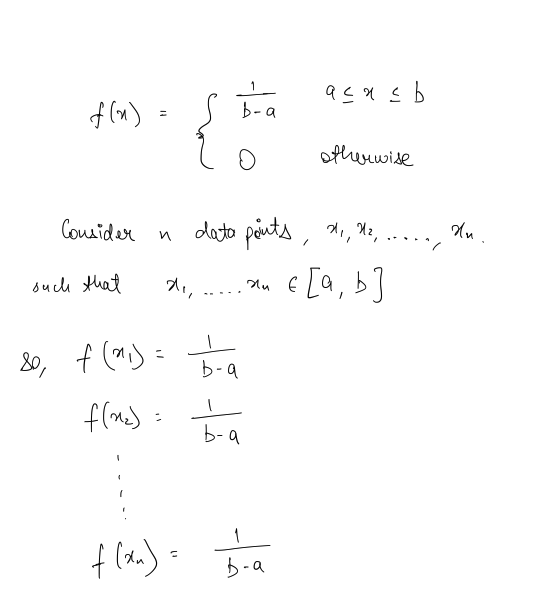 f(x) = { 1/(b-a) a ≤ x ≤ b
0 otherwise
Consider n data points, x₁, x₂, ....., xₙ.
such that x₁, ..... xₙ ∈ [a, b]
So, f(x₁) = 1/(b-a)
f(x₂) = 1/(b-a)
⋮
f(xₙ) = 1/(b-a)